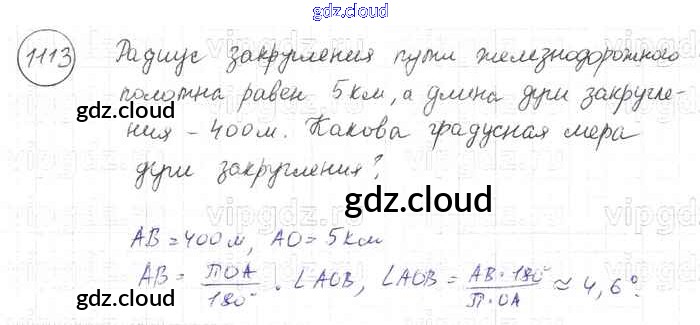 gdz.cloud
1113 Радиус закругления пути железнодорожного
полотна равен 5 км, а длина дуги закругле-
ния - 400 м. Какова градусная мера
дуги закругления?
gdz.cloud
gdz.cloud
gdz.cloud
AB = 400 м, AO = 5 км
AB = ПOA/180° · ∠AOB, ∠AOB = AB·180°/П·OA ≈ 4,6°.
gdz.cloud
gdz.cloud